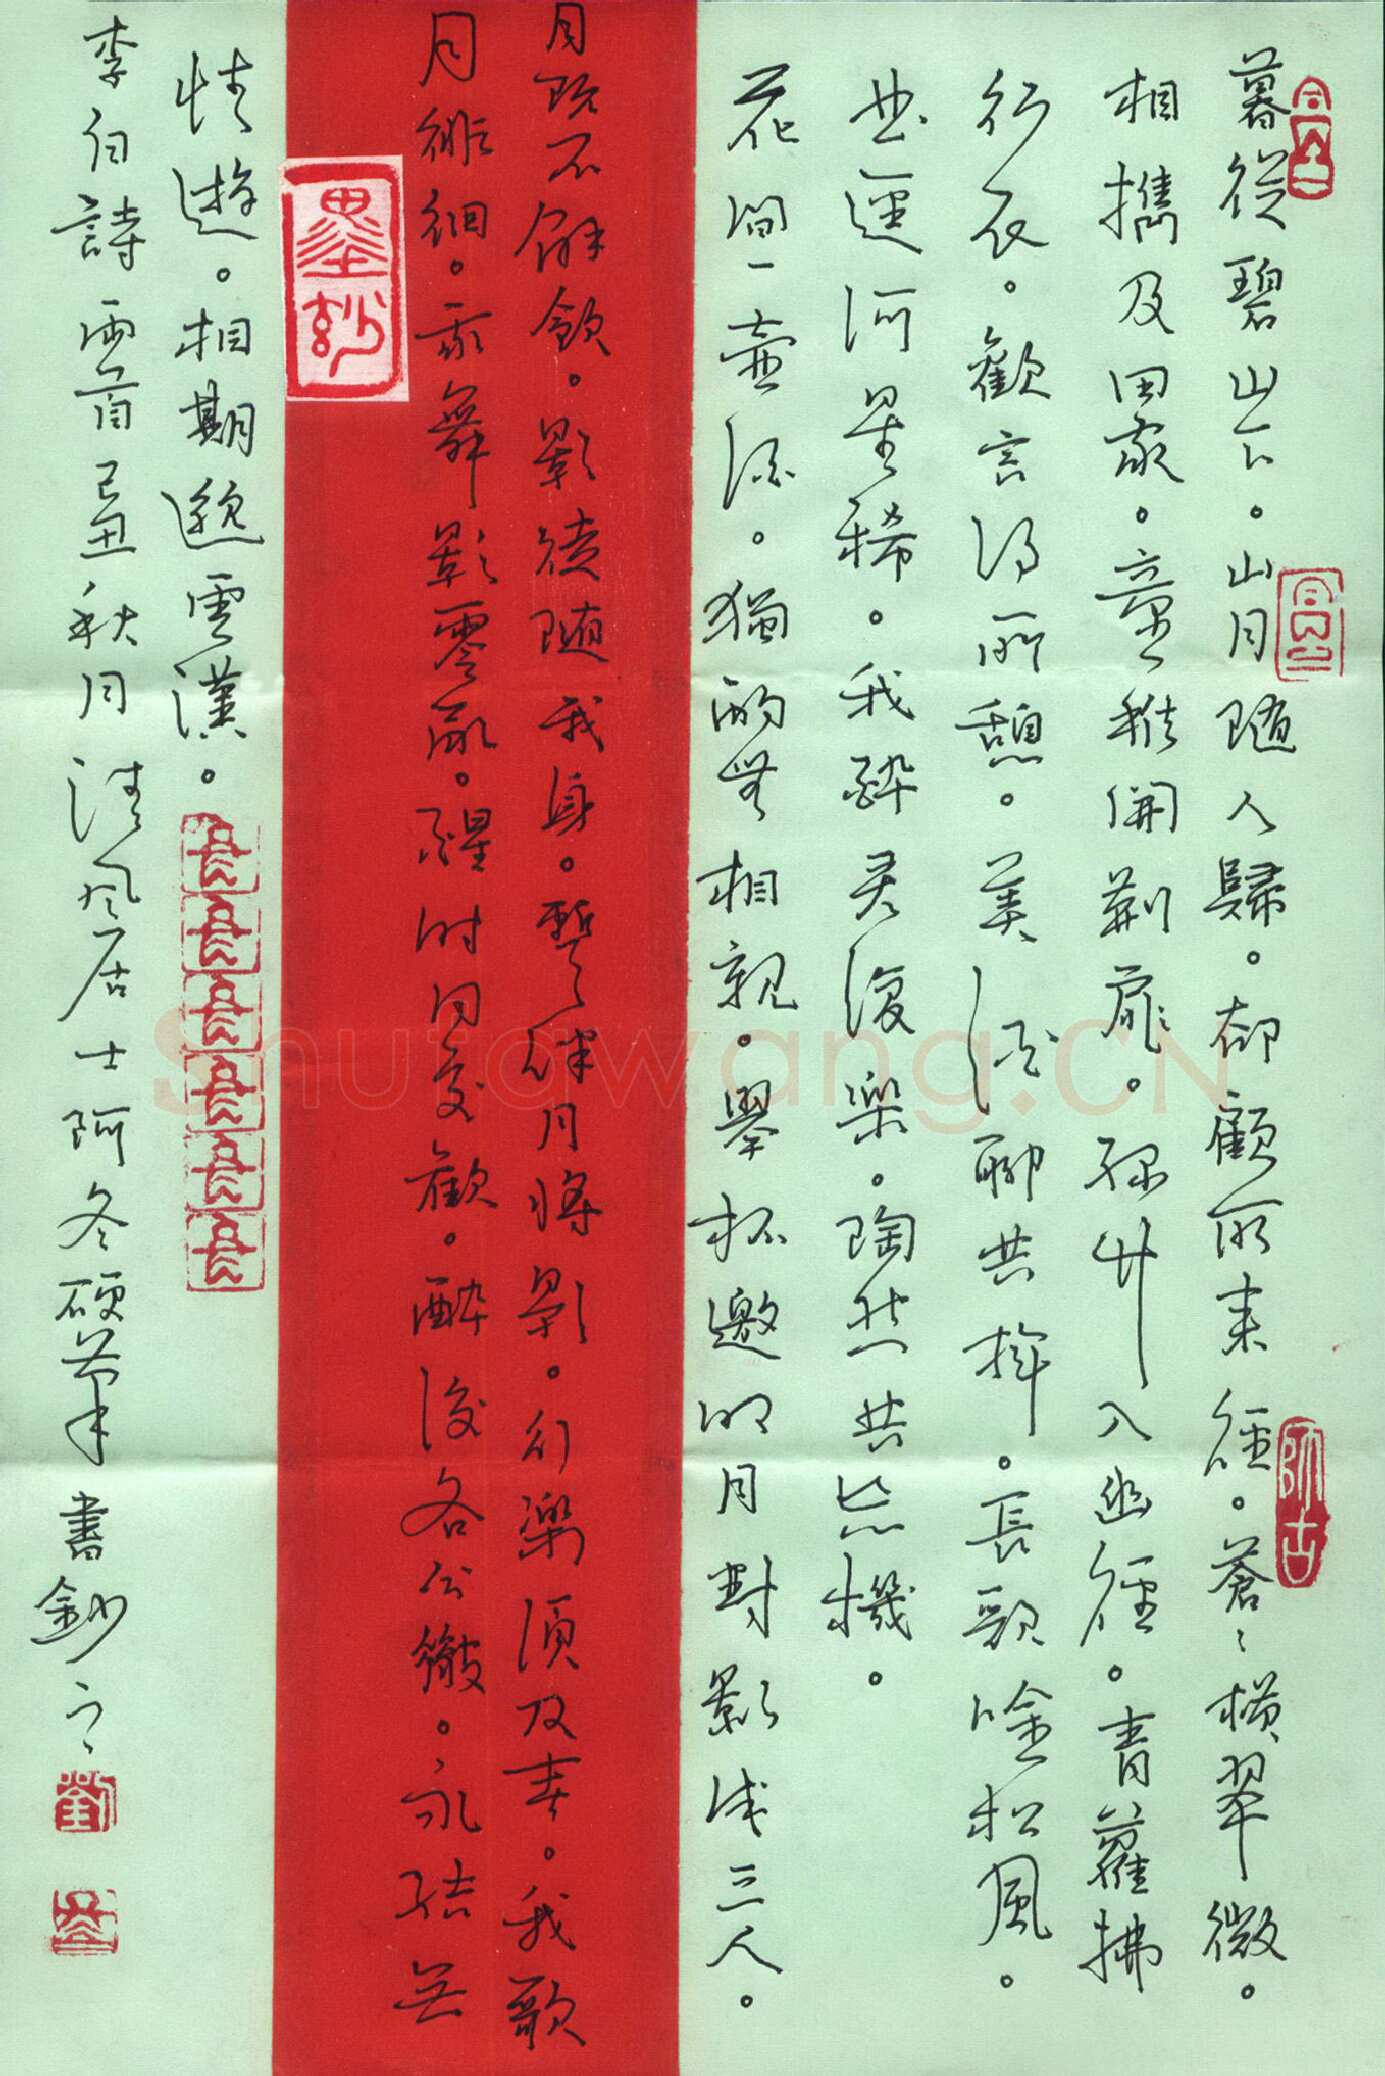 暮從碧山下。山月隨人歸。却顧所来徑。蒼〻横翠微。
相攜及田家。童稚開荆扉。綠竹入幽徑。青蘿拂
行衣。歡言得所憩。美酒聊共揮。長歌唫松風。
曲盡河星稀。我醉君復樂。陶然共忘機。
花間一壺酒。獨酌無相親。舉杯邀明月對影成三人。
月既不解飲。影徒隨我身。暫伴月將影。行樂須及春。我歌
月徘徊。我舞影零亂。醒时同交歡。醉後各分散。永結無
情遊。相期邈雲漢。
李白詩両首己丑秋月清風居士阿冬硬筆書鈔之
師古
墨妙
Shufawang.CN